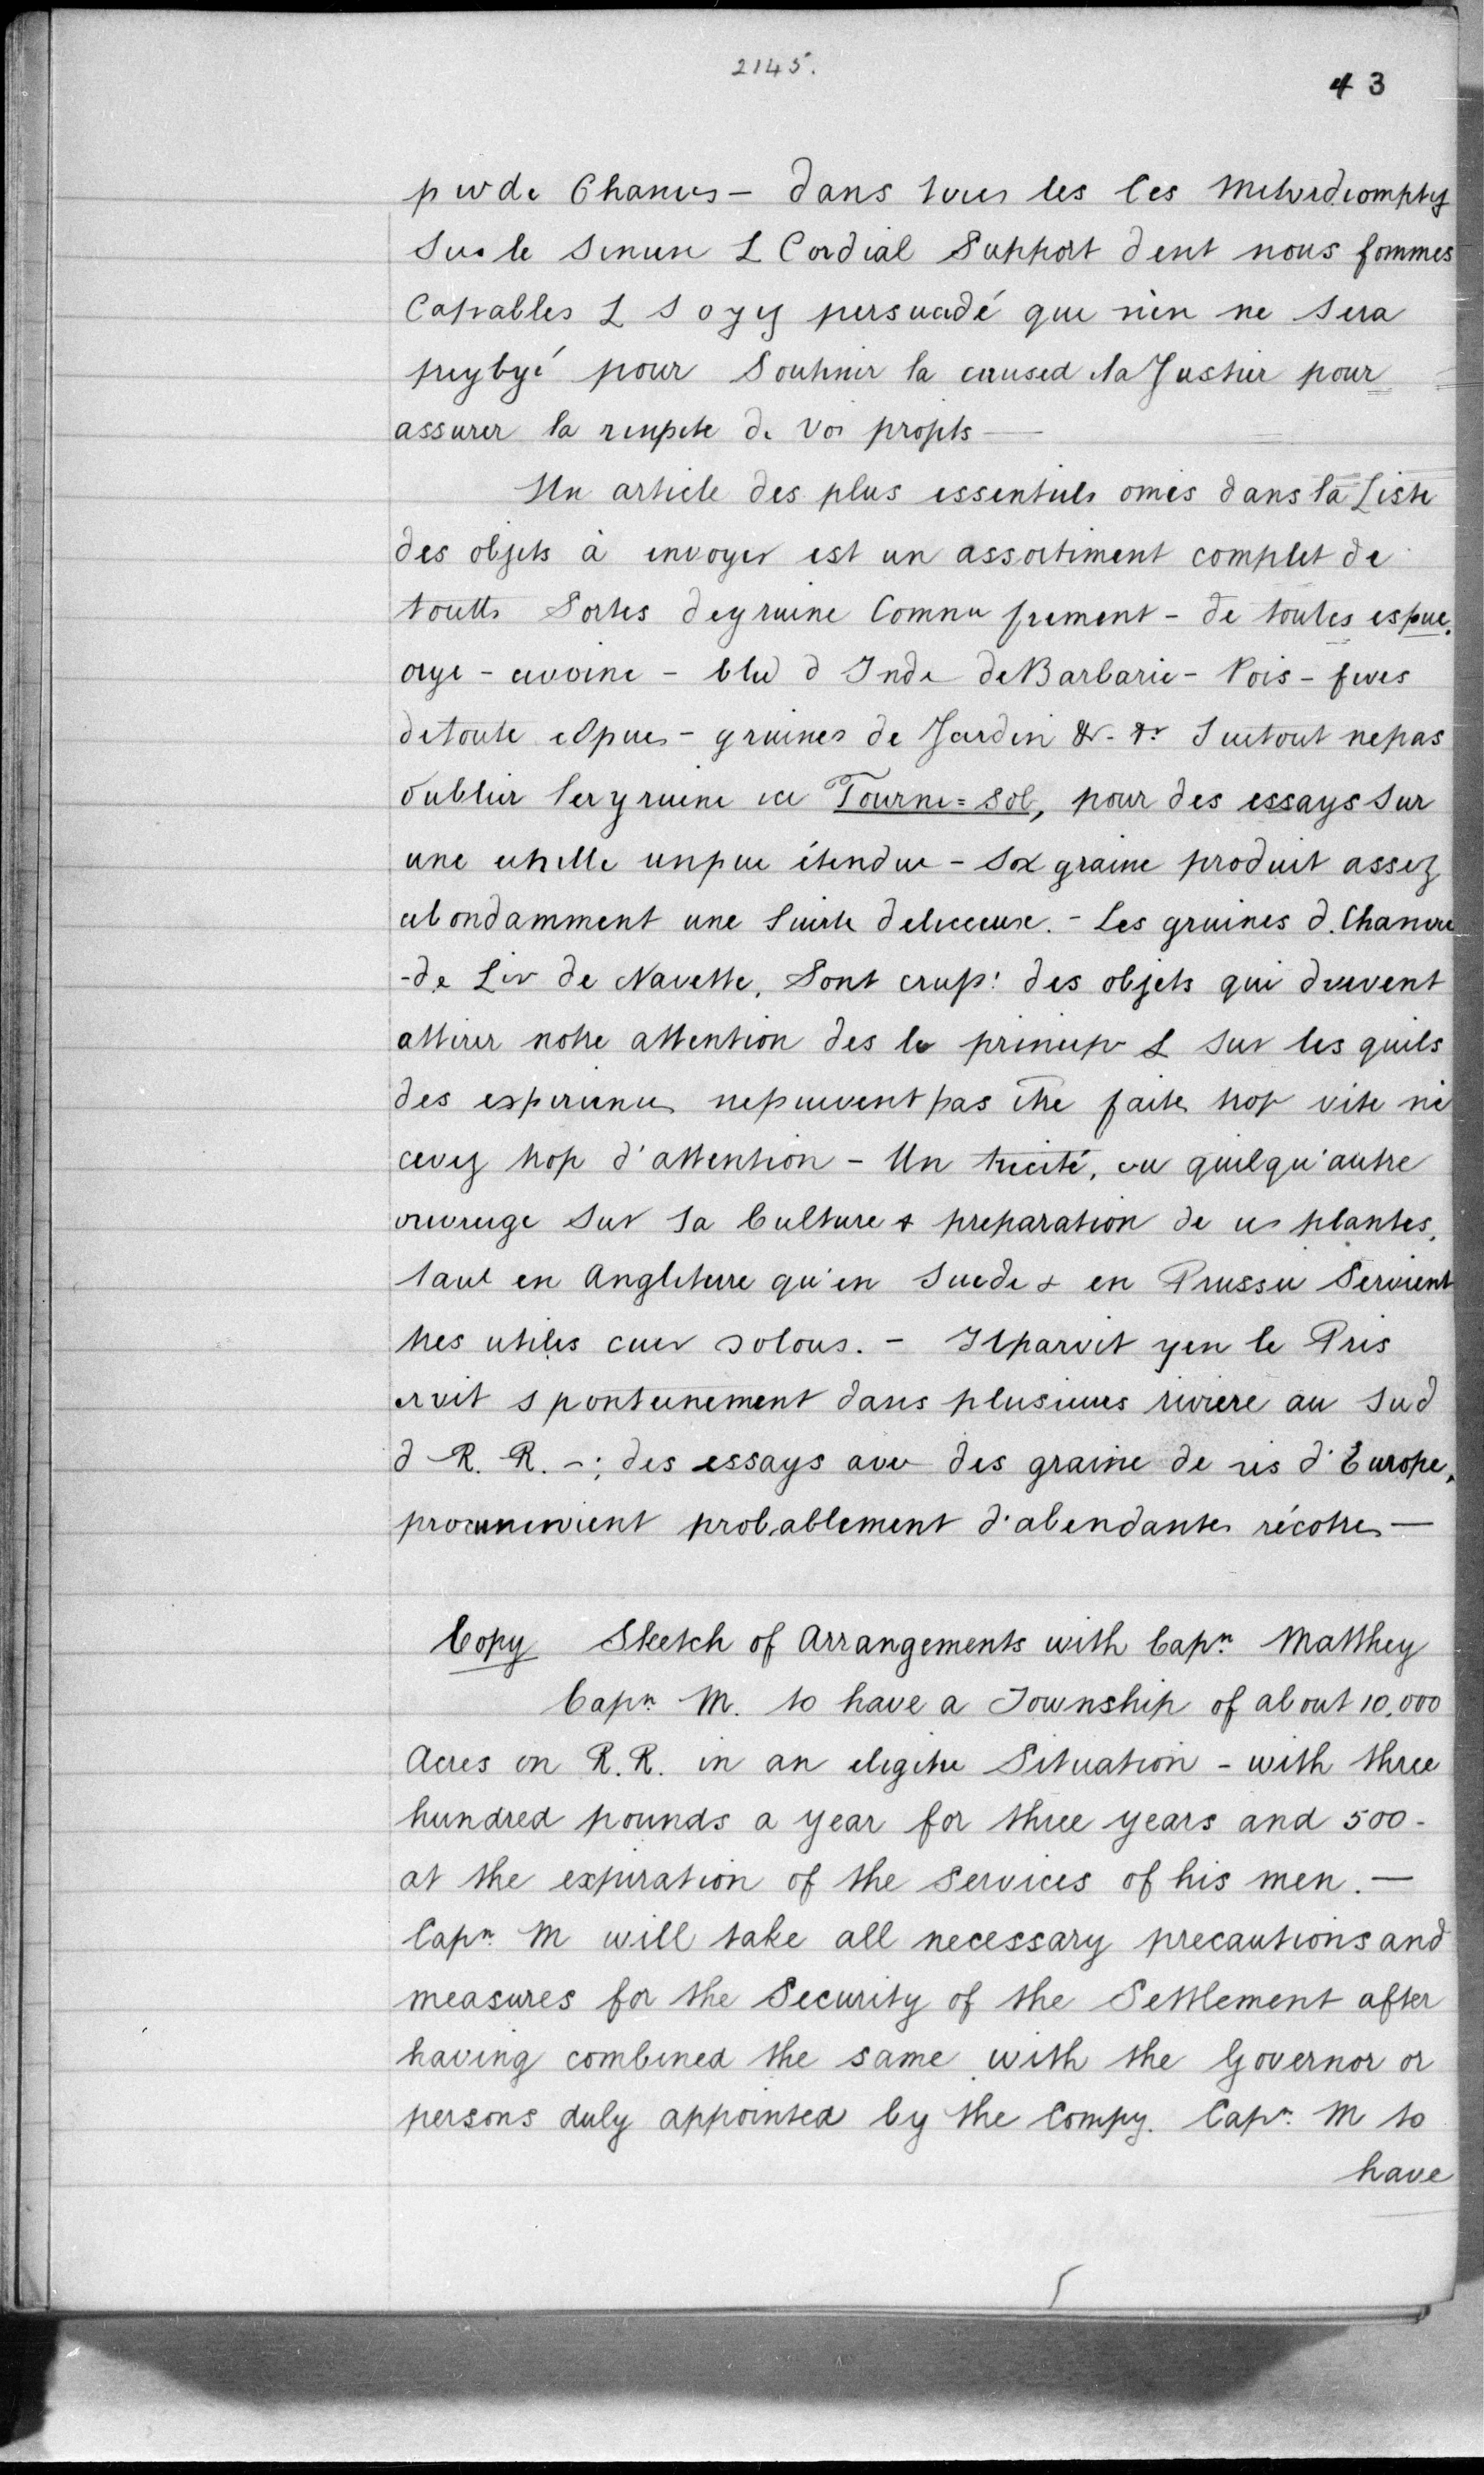 2145.
43
pwde Chanvs - dans tous les les Milord comptez
Sur le Sincere L Cordial Support dent nous sommes
Capables L Soyez persuadé que rien ne Sera
pour Soutenir la caused la Justice pour
assurer la de Vos projets —
Un article des plus essentiels omis dans la Liste
des objets à envoyer est un assortiment complet de
toutts Sortes degruine Comnu frement - de toutes espue.
orge - avoine - bled d Inde de Barbarie - Pois - feves
detoute espues - gruines de Jardin &. &r Surtout nepas
oublier ler gruine ici Tourne=Sol, pour des essays Sur
une echelle unpeu étendue - Sa graine produit assez
abondamment une Suirte delicieuse. - Les gruines d. Chanvre
-de Lin de Navette, Sont crusp: des objets qui doivent
attirer notre attention des le princip L Sur les quels
des experience nepeuvent pas être faites trop vite ni
avez trop d'attention - Un traité, ou quelqu'autre
ouvrage Sur la Culture & preparation de ces plantes,
tant en Angleterre qu'en Suede & en Prusse Servient
tres utiles aux Colons. - Ilparoit yen le Pris
croit spontanement dans plusieurs riviere au Sud
d R. R. -; des essays avec des graine de ris d'Europe,
procurerient probablement d'abendantes récoltes —
Copy Sketch of Arrangements with Capn. Matthey
Capn. M. to have a Township of about 10,000
Acres on R.R. in an eligitre Situation - with three
hundred pounds a year for three years and 500 -
at the expiration of the Services of his men. —
Capn. M will take all necessary precautions and
measures for the Security of the Settlement after
having combined the same with the Governor or
persons duly appointed by the Compy. Capn. M to
have